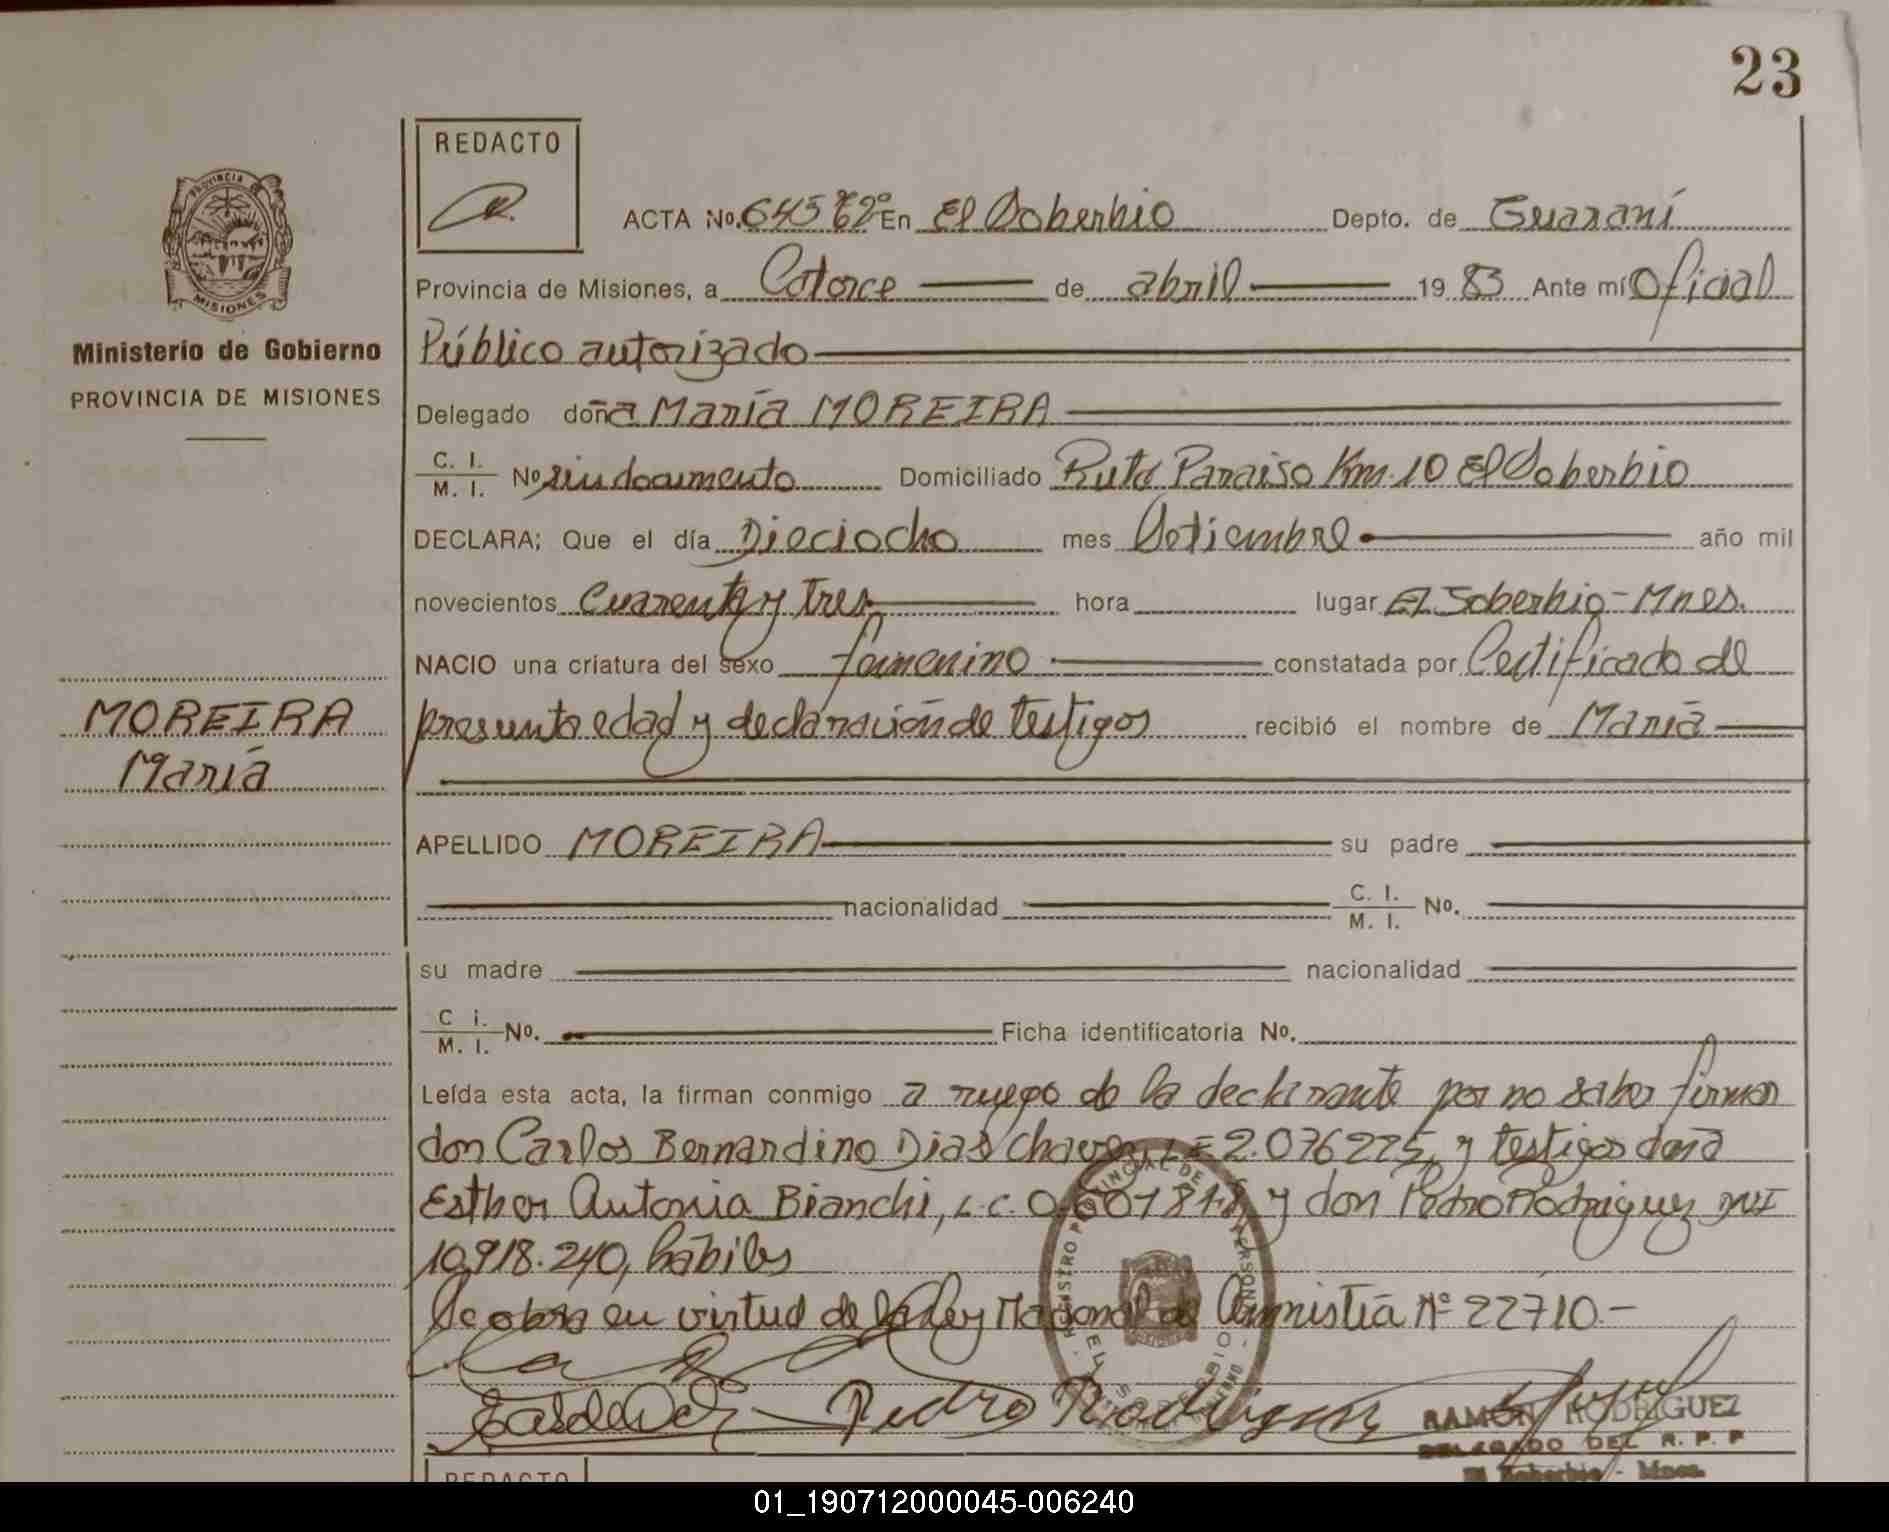 23
REDACTO
ACTA No. En El Soberbio Depto. de Guaraní
Provincia de Misiones, a Catorce de abril 1983 Ante mí Oficial
Ministerio de Gobierno
Público autorizado
PROVINCIA DE MISIONES
Delegado doña María MOREIRA
C. I.
M. I. No sin documento Domiciliado Ruta Paraiso Km. 10 El Soberbio
DECLARA; Que el día Dieciocho mes Setiembre año mil
novecientos Cuarenta y tres hora lugar El Soberbio - Mnes.
NACIO una criatura del sexo femenino constatada por Certificado de
MOREIRA
presunta edad y declaración de testigos recibió el nombre de María
María
APELLIDO MOREIRA su padre
nacionalidad C. I.
M. I. No.
su madre nacionalidad
C i.
M. I. No. Ficha identificatoria No.
Leída esta acta, la firman conmigo a ruego de la declarante por no saber firmar
don Carlos Bernardino Dias Chaves, L E 2.076225, y testigos doña
Esther Antonia Bianchi, L.C. y don Pedro Rodriguez DNI
10.918.240, hábiles
Se obra en virtud de la Ley Nacional de Amnistía Nº 22710.-
Pedro Rodriguez
RAMON RODRIGUEZ
DELEGADO DEL R. P. P
El Soberbio - Mnes.
REDACTO
01_190712000045-006240